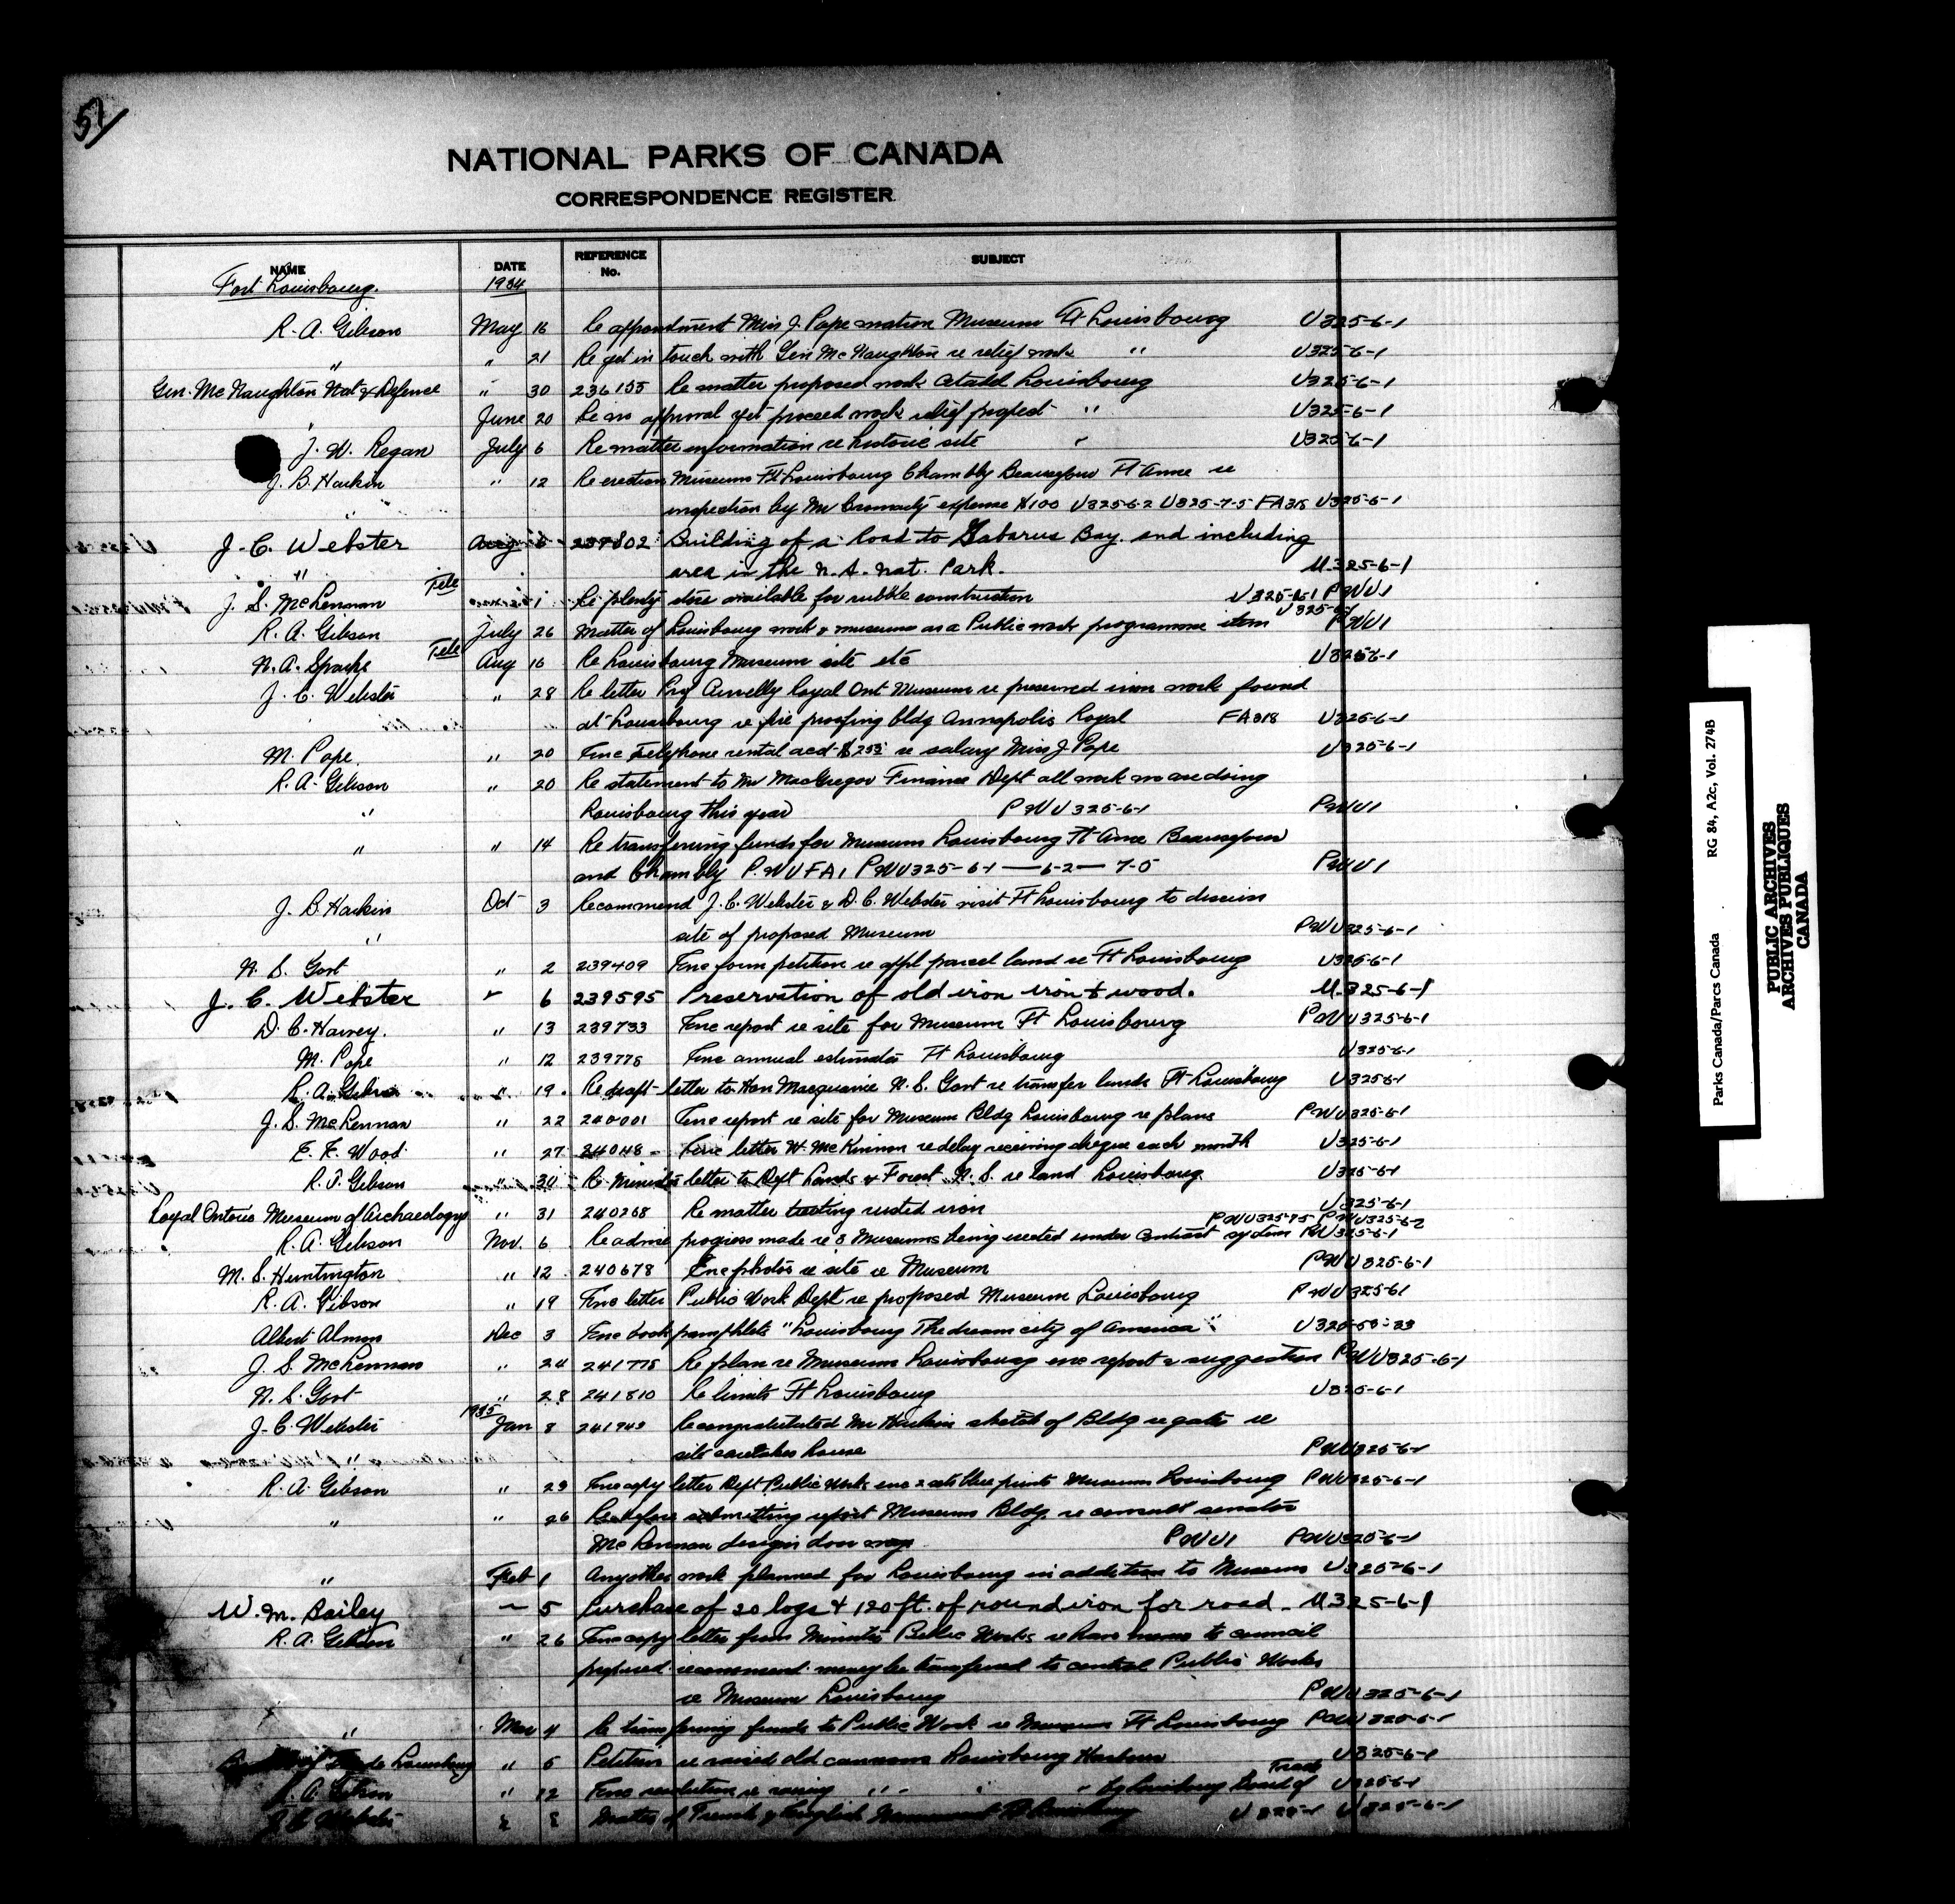 51
NATIONAL PARKS OF CANADA
CORRESPONDENCE REGISTER
NAME DATE REFERENCE No. SUBJECT
Fort Louisbourg. 1934
R. A. Gibson May 16 Re appointment Miss J. Pope matron Museum Ft Louisbourg U325-6-1
" " 21 Re get in touch with Gen McNaughton re relief work " U325-6-1
Gen. McNaughton Nat'l Defence " 30 236155 Re matter proposed work Citadel Louisbourg U325-6-1
" June 20 Re no approval yet proceed work relief project " U325-6-1
J. W. Regan July 6 Re matter information re historic site " U325-6-1
J. B. Harkin " 12 Re erection Museums Ft Louisbourg Chambly Beausejour Ft Anne re
" inspection by Mr Cromarty expense $100 U325-6-2 U325-7-5 FA318 U325-6-1
J. C. Webster Aug 6 237802 Building of a Road to Gabarus Bay. and including
" area in the N.S. Nat. Park. U.325-6-1
J. S. McLennan Tele 1 Re plenty stone available for rubble construction U325-6-1 PWU1
R. A. Gibson July 26 Matter of Louisbourg work & museums as a Public work programme item U325-6-1 PWU1
N. A. Sparks Tele Aug 16 Re Louisbourg Museum site etc U325-6-1
J. C. Webster " 28 Re letter Prof Currelly Royal Ont Museum re preserved iron work found
at Louisbourg re fire proofing bldg Annapolis Royal FA318 U325-6-1
M. Pope. " 20 Enc Telephone rental acct $2.55 re salary Miss J Pope U325-6-1
R. A. Gibson " 20 Re statement to Mr MacGregor Finance Dept all work we are doing
" Louisbourg this year PWU325-6-1 PWU1
" " 14 Re transferring funds for Museums Louisbourg Ft Anne Beausejour
and Chambly P.WUFA1 PWU325-6-1 — 6-2 — 7-5 PWU1
J. B. Harkin Oct 3 Recommend J. C. Webster & D. C. Webster visit Ft Louisbourg to discuss
" site of proposed Museum PWU325-6-1
N. S. Govt " 2 239409 Enc form petition re appl parcel land re Ft Louisbourg U325-6-1
J. C. Webster " 6 239595 Preservation of old iron iron & wood. U.325-6-1
D. C. Harvey. " 13 239733 Enc report re site for Museum Ft Louisbourg PWU325-6-1
M. Pope " 12 239778 Enc annual estimates Ft Louisbourg U325-6-1
R. A. Gibson " 19. Re draft letter to Hon Macquarrie N. S. Govt re transfer lands Ft Louisbourg U325-6-1
J. S. McLennan " 22 240001 Enc report re site for Museum Bldg Louisbourg re plans PWU325-6-1
E. F. Wood " 27 24048 - Enc letter H. McKinnon re delay receiving cheque each month U325-6-1
R. A. Gibson " 30 Re Minister letter to Dept Lands & Forest N. S. re land Louisbourg U325-6-1
Royal Ontario Museum of Archaeology " 31 240268 Re matter treating rusted iron U325-6-1
R. A. Gibson Nov. 6 Re advise progress made re 3 Museums being erected under contract system PWU325-7-5 PWU325-6-2 PWU325-6-1
M. S. Huntington " 12 240678 Enc photos re site re Museum PWU325-6-1
R. A. Gibson " 19 Enc letter Public Work Dept re proposed Museum Louisbourg PWU325-6-1
Albert Almon Dec 3 Enc book pamphlets "Louisbourg The dream city of America" U325-53-33
J. S. McLennan " 24 241778 Re plan re Museum Louisbourg enc report & suggestion PWU325-6-1
N. S. Govt " 28 241810 Re limits Ft Louisbourg U325-6-1
J. C. Webster 1935 Jan 8 241943 Re congratulated Mr Harkin sketch of Bldg re gates re
" site caretakers house PWU325-6-1
R. A. Gibson " 23 Enc copy letter Dept Public Works enc 2 sets blue prints Museum Louisbourg PWU325-6-1
" " 26 Re before submitting report Museums Bldg. re consult senator
McLennan design door PWU1 PWU325-6-1
" Feb 1 Any other work planned for Louisbourg in addition to Museum U325-6-1
W. M. Bailey " 5 Purchase of 20 logs & 120 ft. of round iron for road. U325-6-1
R. A. Gibson " 26 Enc copy letter from Minister Public Works re have memo to council
prepared recommend money be transferred to control Public Works
re Museum Louisbourg PWU325-6-1
" Mar 4 Re transferring funds to Public Work re Museum Ft Louisbourg PWU325-6-1
Board of Trade Louisbourg " 5 Petition re raised old cannons Louisbourg Harbour U325-6-1
R. A. Gibson " 12 Enc resolution re raising " " " " by Louisbourg Board of Trade U325-6-1
J. C. Webster Matter of French & English Monument Ft Louisbourg U325-1 U325-6-1
Parks Canada/Parcs Canada RG 84, A2c, Vol. 274B
PUBLIC ARCHIVES
ARCHIVES PUBLIQUES
CANADA